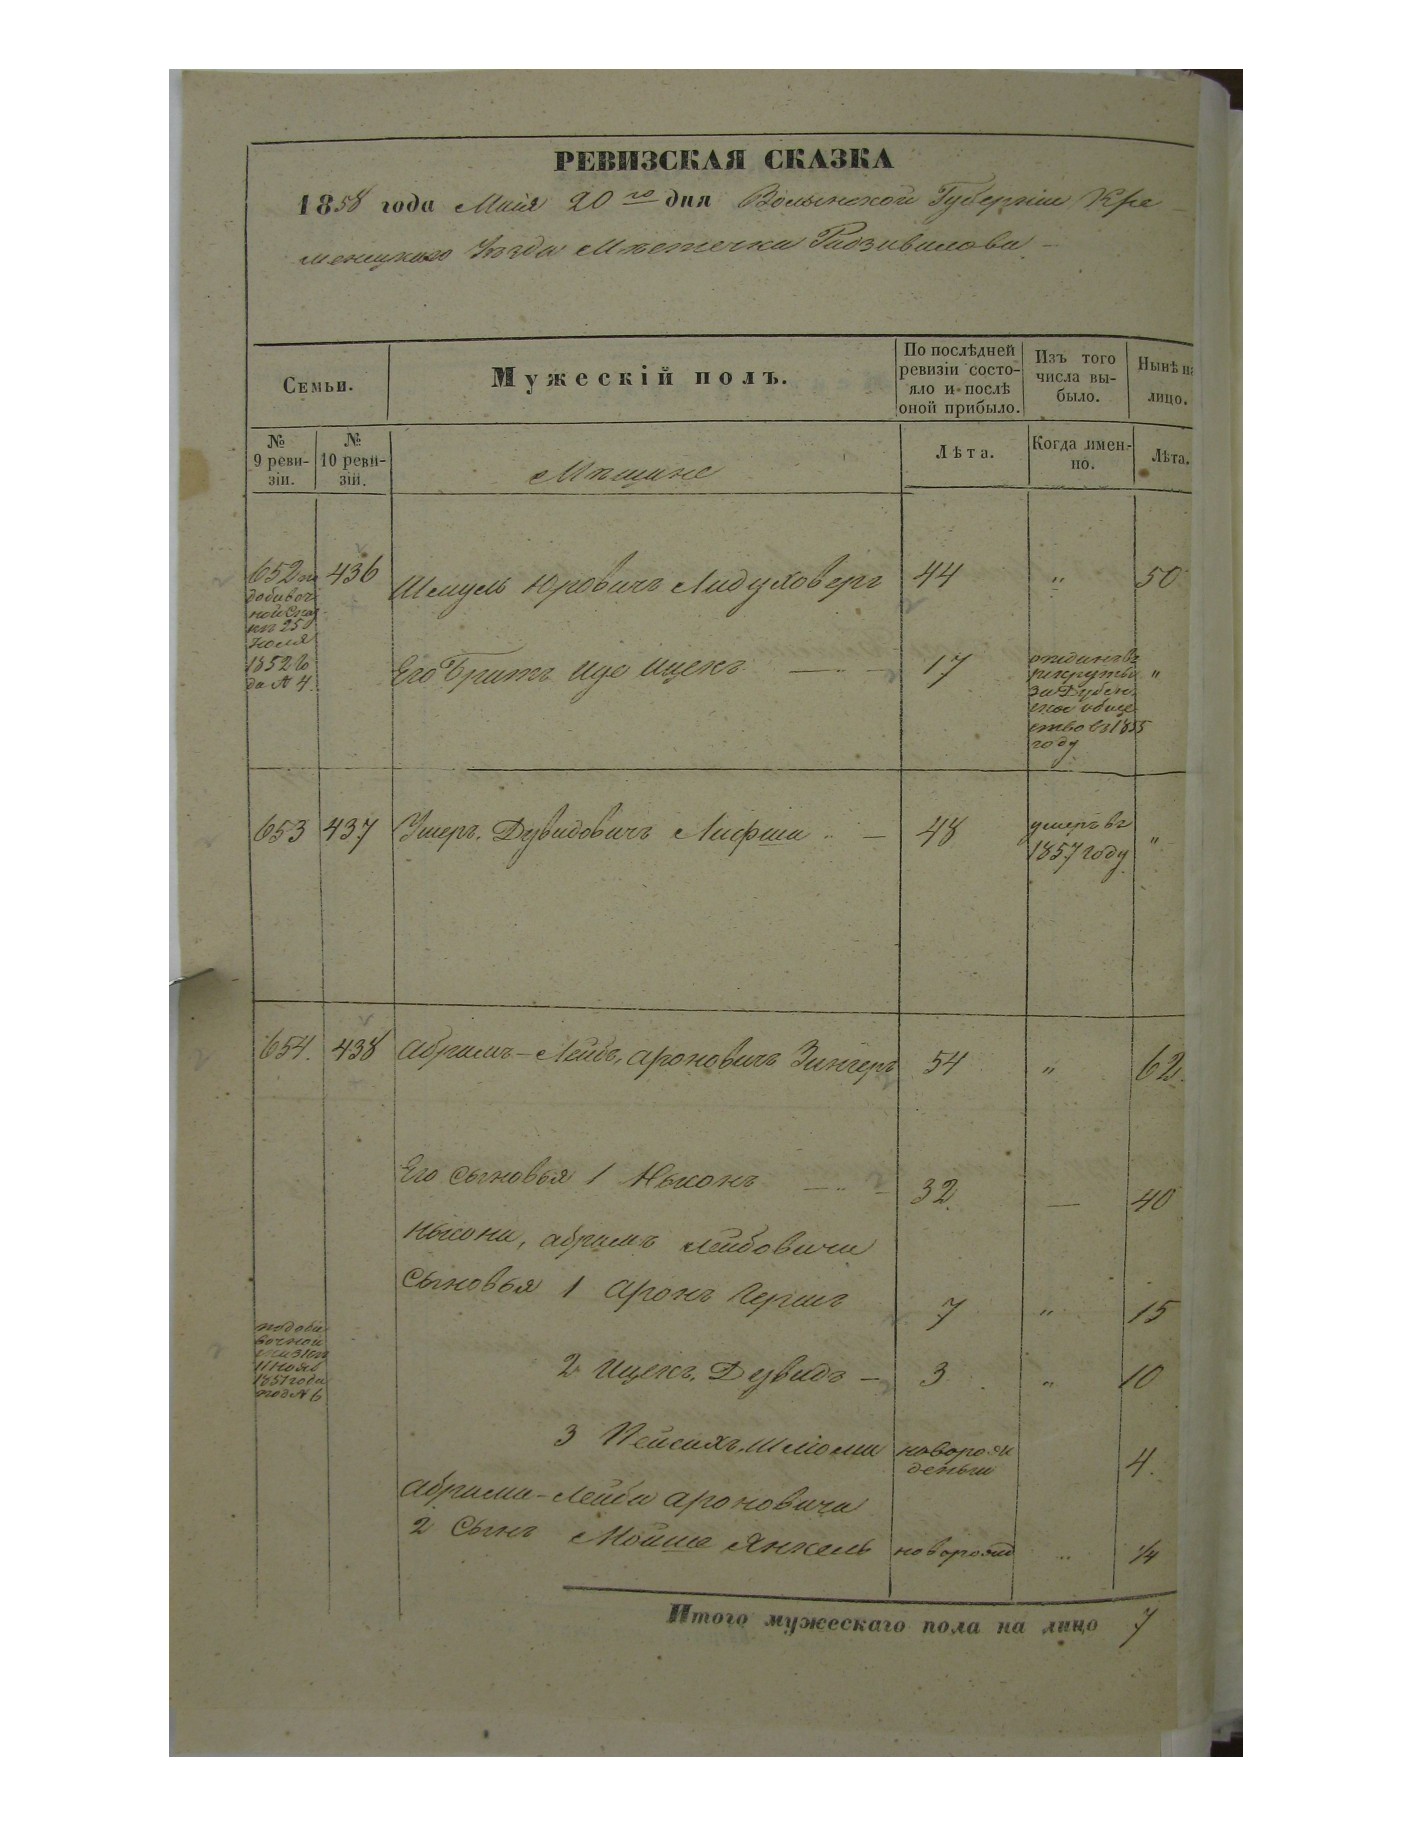 РЕВИЗСКАЯ СКАЗКА
1858 года Мая 20го дня Волынской Губерніи Кре
менецкаго Уѣзда Мѣстечка Радзивилова
Семьи.
Мужескій полъ.
По послѣдней
ревизіи состо-
яло и послѣ
оной прибыло.
Изъ того
числа вы-
было.
Нынѣ на
лицо.
№
9 реви-
зіи.
№
10 реви-
зіи.
Мѣщане
Лѣта.
Когда имен-
но.
Лѣта.
652 по
добавоч
ной Ска
къ 25
Іюля
1852 Го
да № 4.
436
Шмуль Юровичъ Лидуховеръ
44
"
50
Его Братъ Иде Ицекъ
17
отданъ въ
рекруты
за Дубен
ское обще
ство въ 1855
году
"
653
437
Ушеръ Дувидовичъ Лифша
48
умеръ въ
1857 году
"
654.
438
Абрамъ-Лейбъ, Ароновичъ Зингеръ
54
"
62
Его Сыновья 1 Нысонъ
32
—
40
Нысона, Абрамъ Лейбовича
Сыновья 1 Аронъ Гершъ
7
"
15
2 Ицекъ Дувидъ —
3
"
10
по доба
вочной
11 Нояб
1851 года
под № 6
3 Пейсахъ Шлioма
новорож
денъ
4.
Абрама-Лейба Ароновича
2 Сынъ Мойше Янкель
новорожд
"
1/4
Итого мужескаго пола на лицо 7